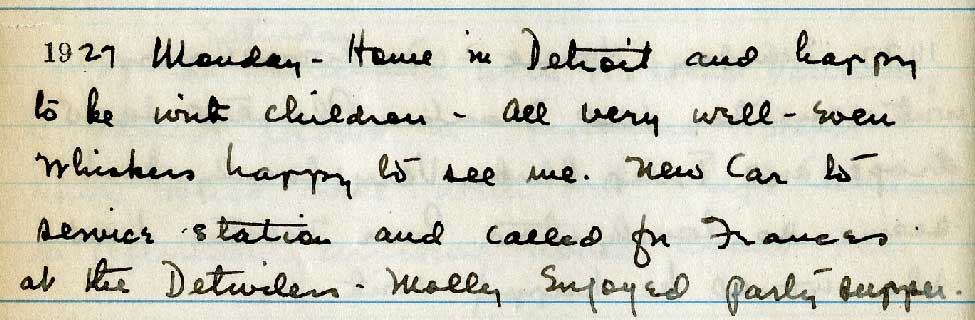 1927 Monday - Home in Detroit and happy
to be with children - All very well - Even
Whiskers happy to see me. New Car to
service station and called for Frances
at the Detwilers - Molly Enjoyed party supper.